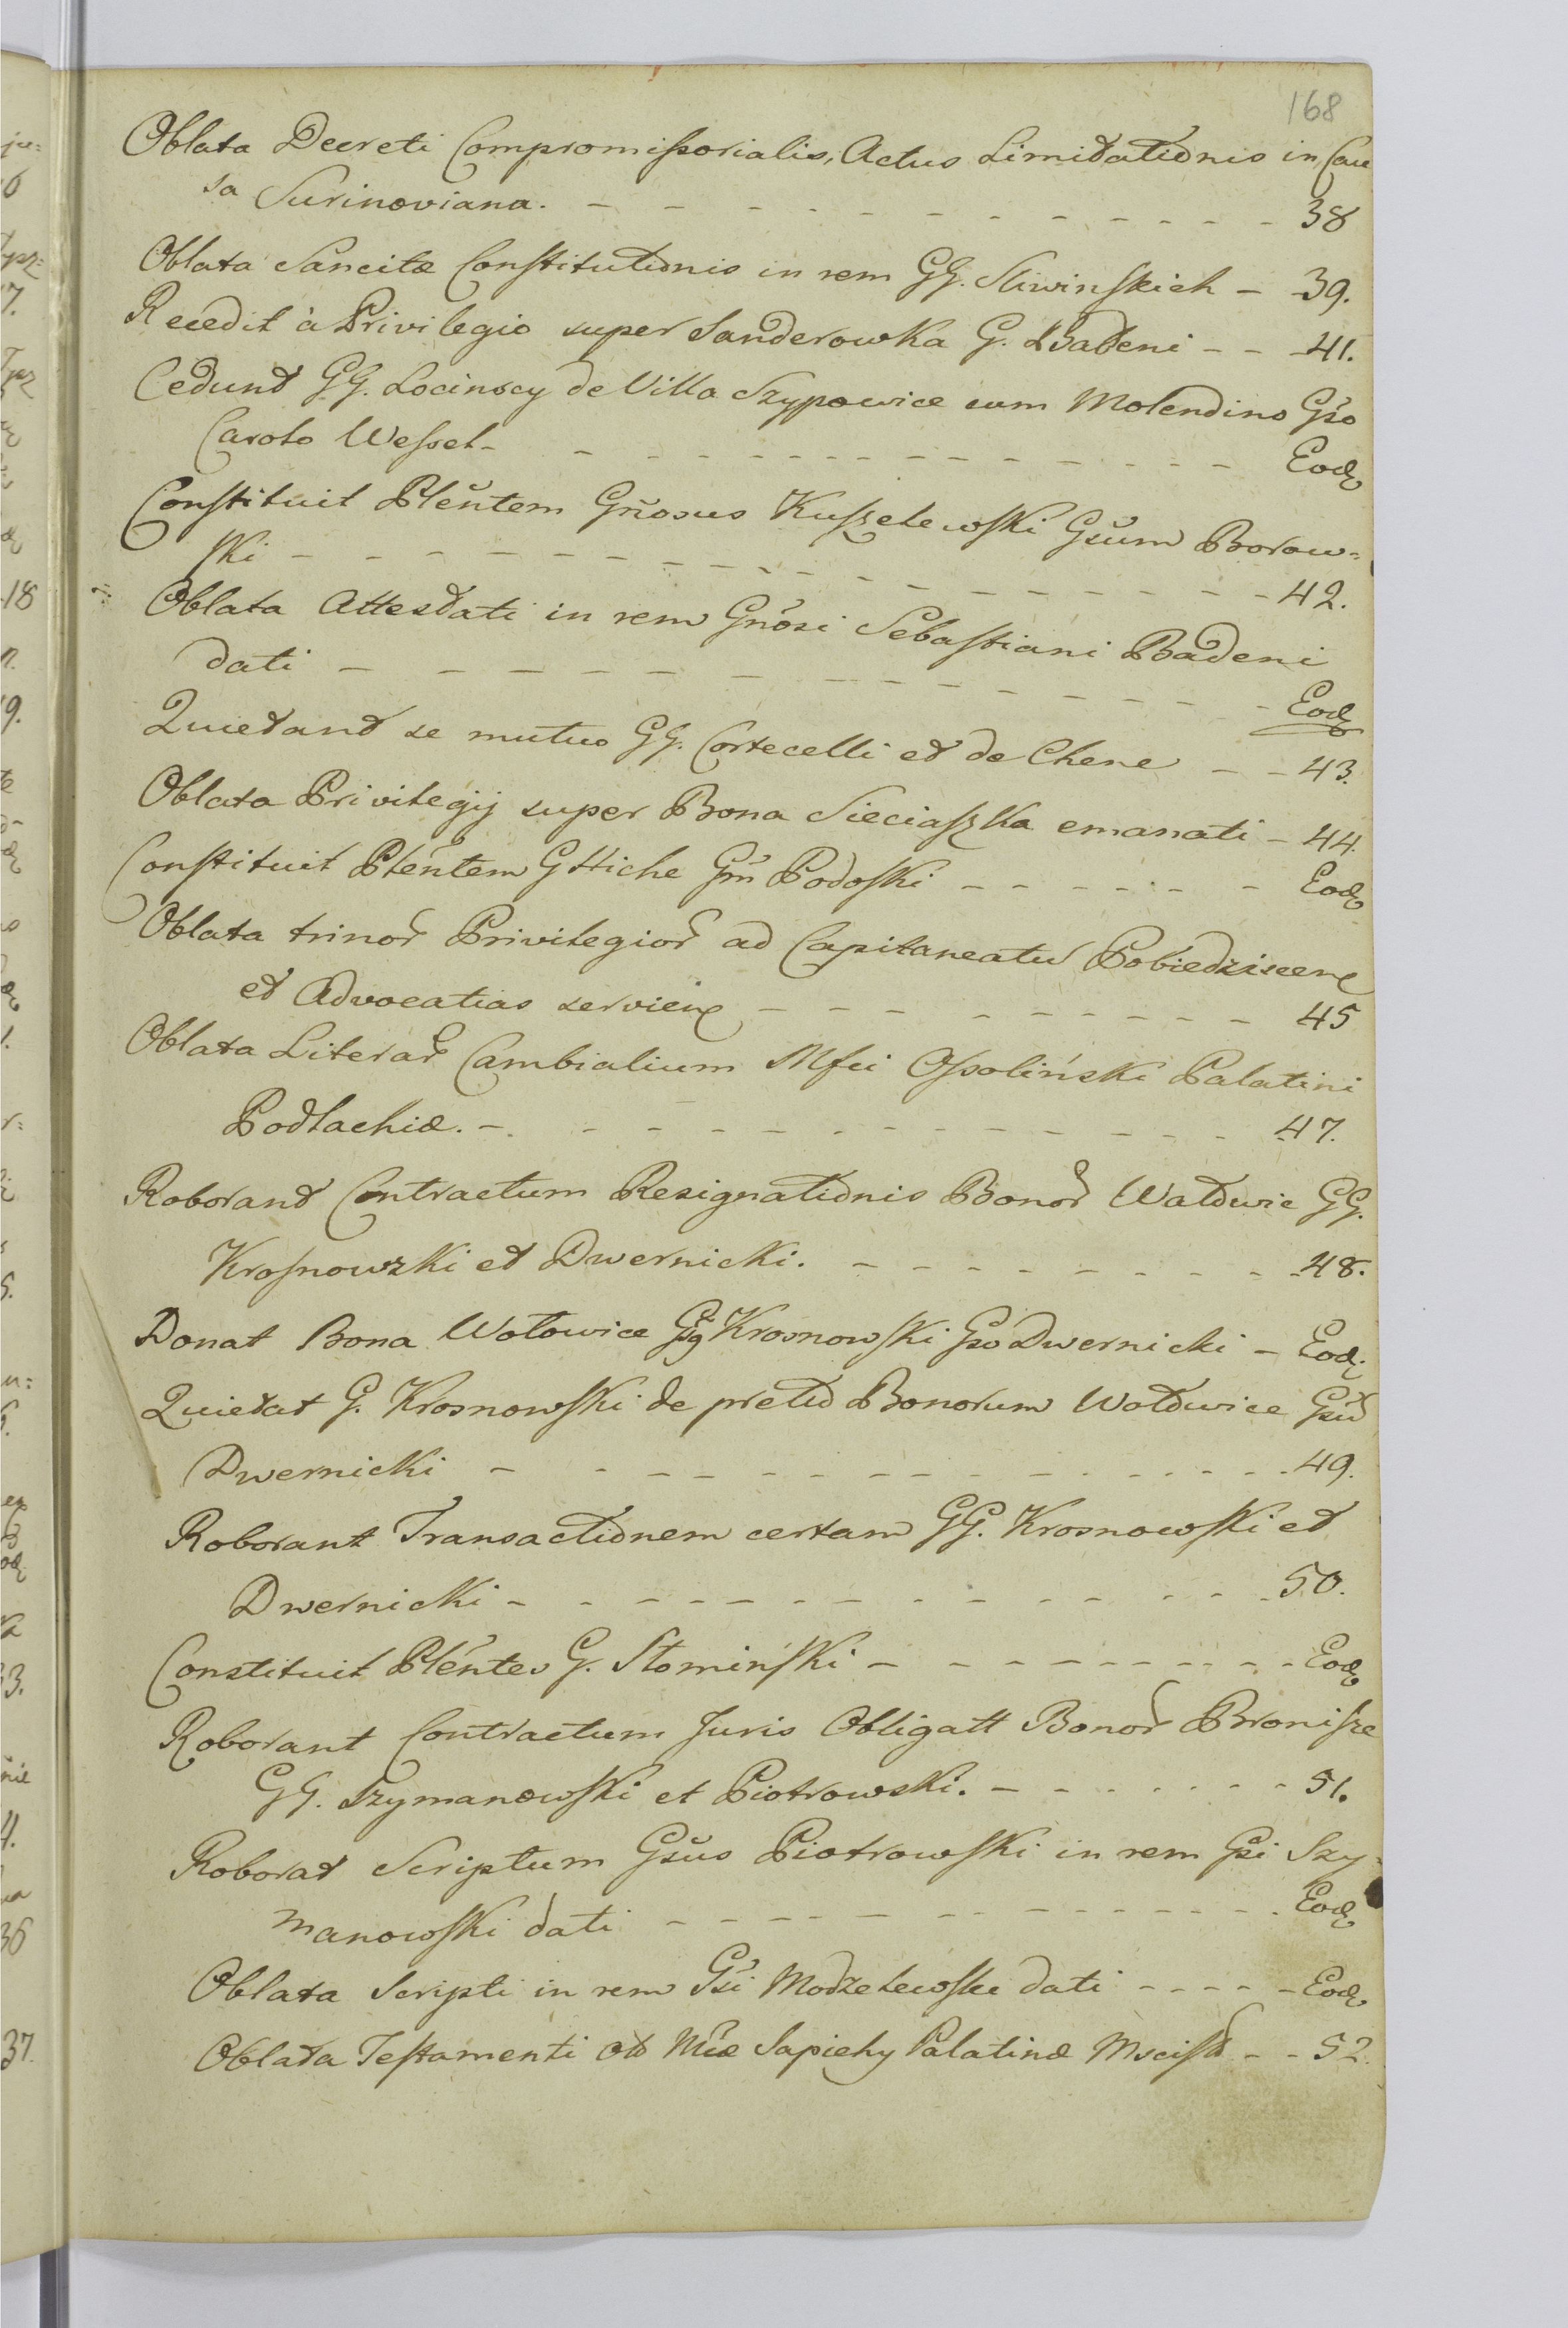 168
Oblata Decreti Compromissorialis, Actus Limitationis in Cau
sa Surinoviana. - - - - - - - - - - - - 38
Oblata Sancitæ Constitutionis in rem GG. Sliwinskich - 39.
Recedit à Privilegio super Sanderowka G. Badeni - - - 41.
Cedunt GG. Locinscy de Villa Szypowice cum Molendino Gso
Carolo Wessel - - - - - - - - - - - - - Eod
Constituit Plentem Gnosus Kuszelewski Gsum Borow=
ski - - - - - - - - - - - - - - - - - 42.
Oblata Attestati in rem Gnosi Sebastiani Badeni
dati - - - - - - - - - - - - - - - Eod
Quietant se mutuo GG. Cortecelli et de Chene - - 43.
Oblata Privilegij super Bona Sieciaszka emanati - 44.
Constituit Plentem G Hiche Gm Podoski - - - - - - Eod
Oblata trinor Privilegior ad Capitaneatu Pobiedziscen
et Advocatias servien - - - - - - - - - 45
Oblata Literar Cambialium Mfci Ossoliński Palatini
Podlachiæ. - - - - - - - - - - - - - 47.
Roborant Contractum Resignationis Bonor Watowic GG.
Krosnowski et Dwernicki. - - - - - - - - - 48.
Donat Bona Wolowice Gsg Krosnowski Gso Dwernicki - Eod
Quietat G. Krosnowski de pretio Bonorum Wolowice Gsu
Dwernicki - - - - - - - - - - - - - 49.
Roborant Transactionem certam GG. Krosnowski et
Dwernicki - - - - - - - - - - - - - 50.
Constituit Plentes G. Slomiński - - - - - - - - - Eod
Roborant Contractum Juris Obligatt Bonor Bronisze
GG. Szymanowski et Piotrowski. - - - - - - - 51.
Roborat Scriptum Gsus Piotrowski in rem Gsi Szy-
manowski dati - - - - - - - - - - - - Eod
Oblata Scripti in rem Gsi Modzelewski dati - - - - - Eod
Oblata Testamenti Mcæ Sapiehy Palatinæ Mscisl - - 52.